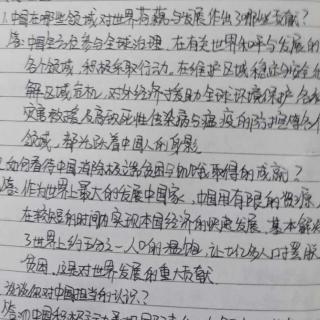 1.中国在哪些领域对世界贡献与发展作出了哪些贡献？
答：中国全方位参与全球治理，在有关世界和平与发展的
各个领域，积极采取行动。在维护区域稳定
解区域危机，对外经济援助全球环境保护
灾害救援及高致死性传染病与瘟疫的防
领域，都活跃着中国人的身影
2.如何看待中国消除极端贫困与饥饿取得的成就？
答：作为世界上最大的发展中国家，中国用有限的资源
在较短的时间内实现本国经济的快速发展，基本解
了世界上约五分之一人口的温饱，让七亿多人口摆脱
贫困，这是对世界发展的重大贡献
谈谈你对中国担当的认识？
答：